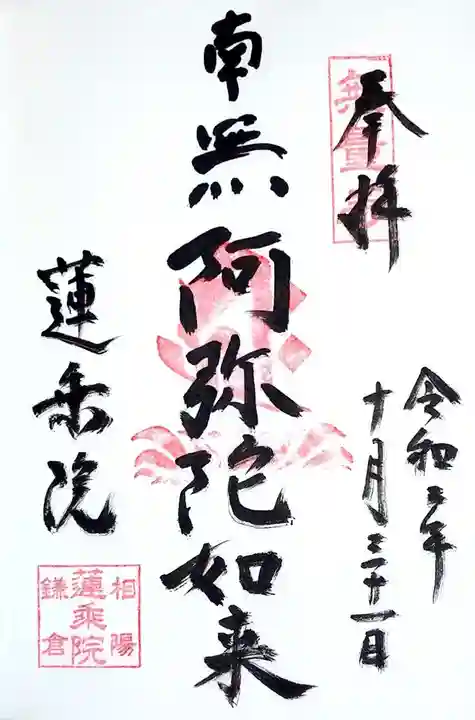 奉拝
無量寺
令和三年
十月三十一日
南無阿弥陀如来
蓮乗院
相陽
蓮乗院
鎌倉